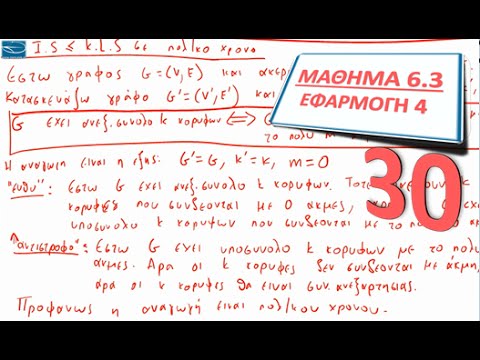 I.S ≤ K.L.S σε πολ/κο χρονο
Εστω γραφος G=(V,E) και ακερ
Κατασκευάζω γράφο G'=(V',E') και
G εχει ανεξ.συνολο κ κορυφων ⟺ G
το πολυ m
Η αναγωγη ειναι η εξης: G'=G, κ'=κ, m=0
"ευθυ": Εστω G εχει ανεξ.συνολο κ κορυφων. Τοτε
κορυφες που συνδεονται με 0 ακμες,
υποσυνολο κ κορυφων που συνδεονται με το πολ
"αντιστροφο": Εστω G εχει υποσυνολο κ κορυφων με το πολυ
ακμες. Αρα οι κ κορυφες δεν συνδεονται με ακμη,
αρα οι κ κορυφες θα ειναι συν. ανεξαρτησιας.
Προφανως η αναγωγή ειναι πολ/κου χρονου.
ΜΑΘΗΜΑ 6.3
ΕΦΑΡΜΟΓΗ 4
30